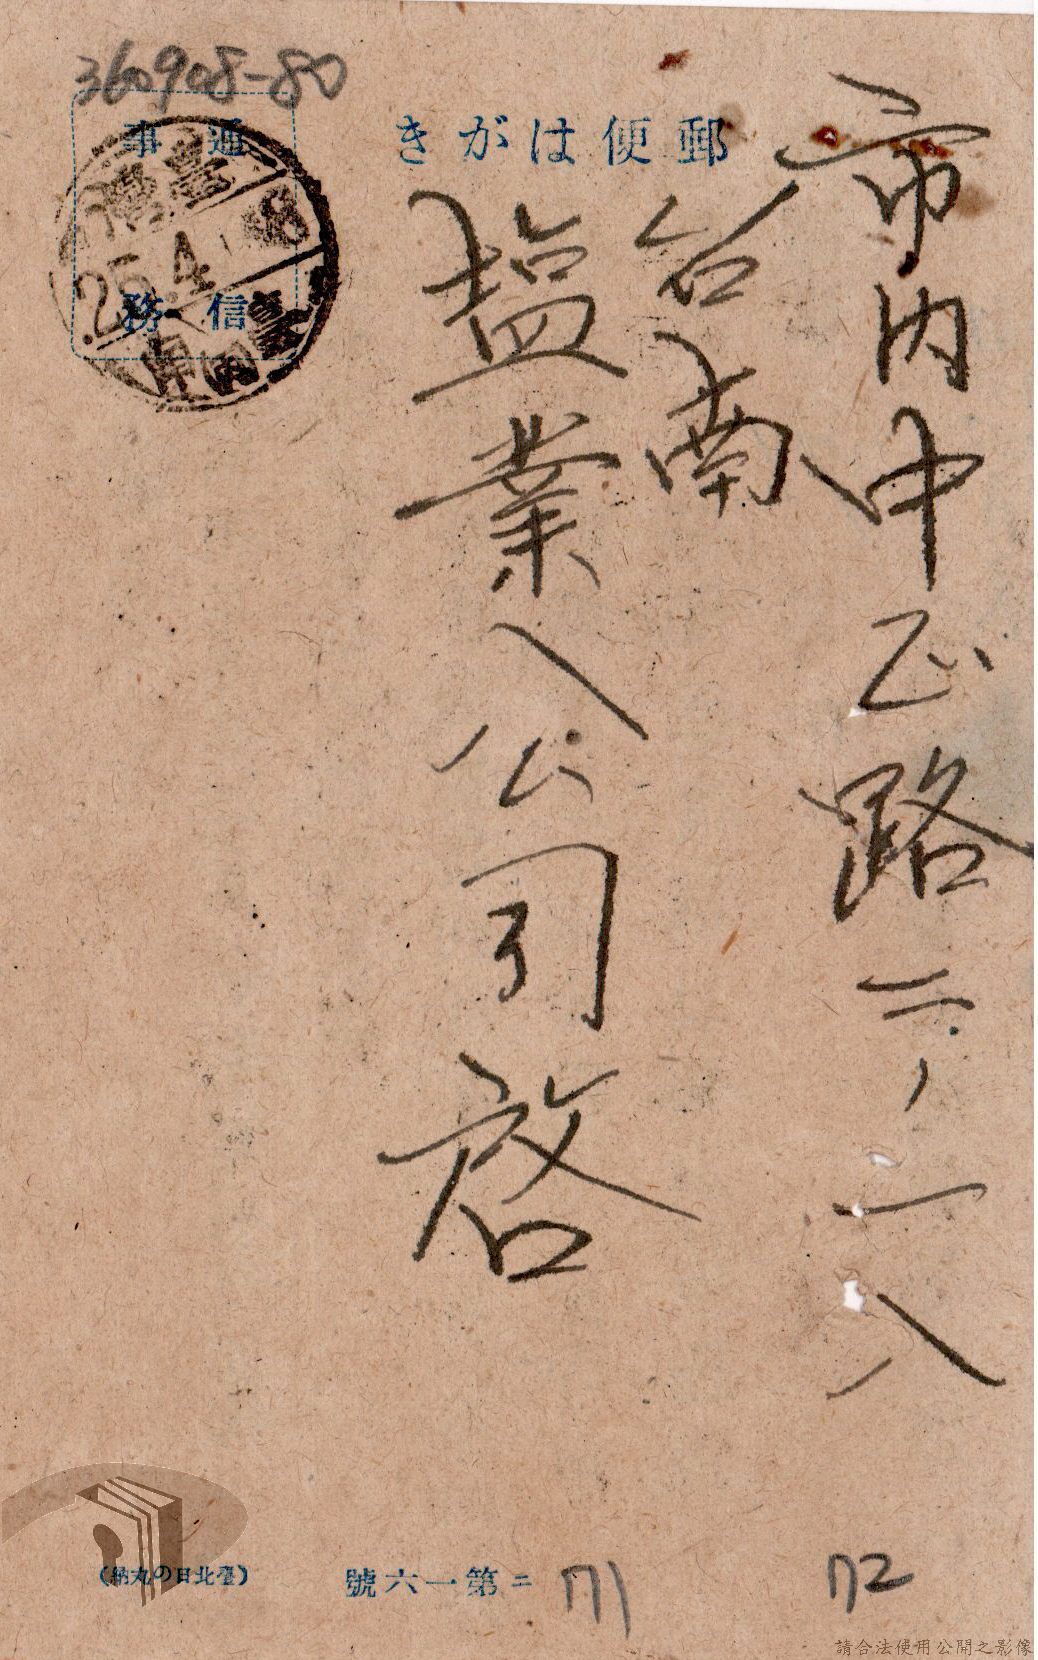 360908-80
郵便はがき
通信
事務
臺灣
25.4
臺
市内中正路六ノ二八
台南
塩業公司啓
(臺北日の丸納)
第一六號ニ
71
72
請合法使用公開之影像